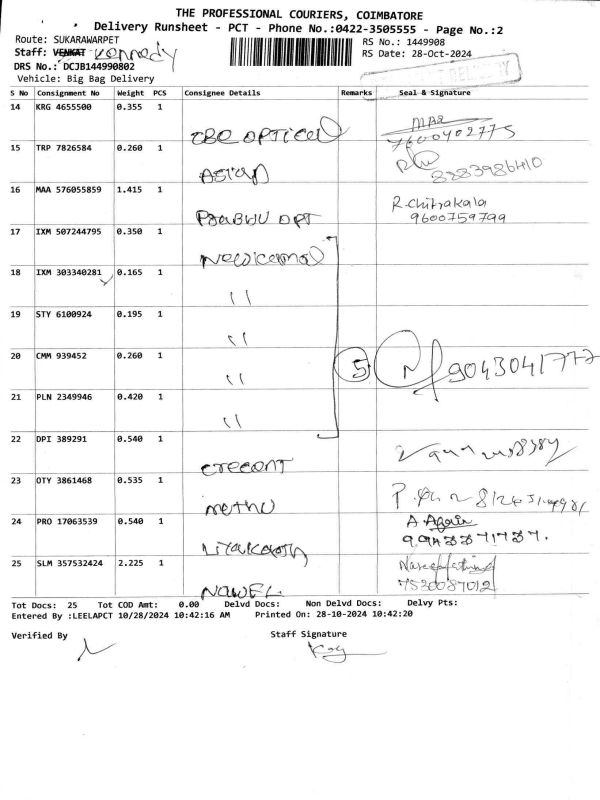 THE PROFESSIONAL COURIERS, COIMBATORE
Delivery Runsheet - PCT - Phone No.:0422-3505555 - Page No.:2
Route: SUKARAWARPET
RS No.: 1449908
Staff: VENKAT Kennedy
RS Date: 28-Oct-2024
DRS No.: DCJB144990802
Vehicle: Big Bag Delivery
S No Consignment No Weight PCS Consignee Details Remarks Seal & Signature
14 KRG 4655500 0.355 1 OPTICAL
7600402775
15 TRP 7826584 0.260 1
8883986410
16 MAA 576055859 1.415 1 PRABHU OPT R.chitrakala
9600759799
17 IXM 507244795 0.350 1
18 IXM 303340281 0.165 1 "
19 STY 6100924 0.195 1 "
20 CMM 939452 0.260 1 " 5 9043041777
21 PLN 2349946 0.420 1 "
22 DPI 389291 0.540 1
23 OTY 3861468 0.535 1 METHU
24 PRO 17063539 0.540 1 A.
25 SLM 357532424 2.225 1 NAWEL
7530087012
Tot Docs: 25 Tot COD Amt: 0.00 Delvd Docs: Non Delvd Docs: Delvy Pts:
Entered By :LEELAPCT 10/28/2024 10:42:16 AM Printed On: 28-10-2024 10:42:20
Verified By Staff Signature